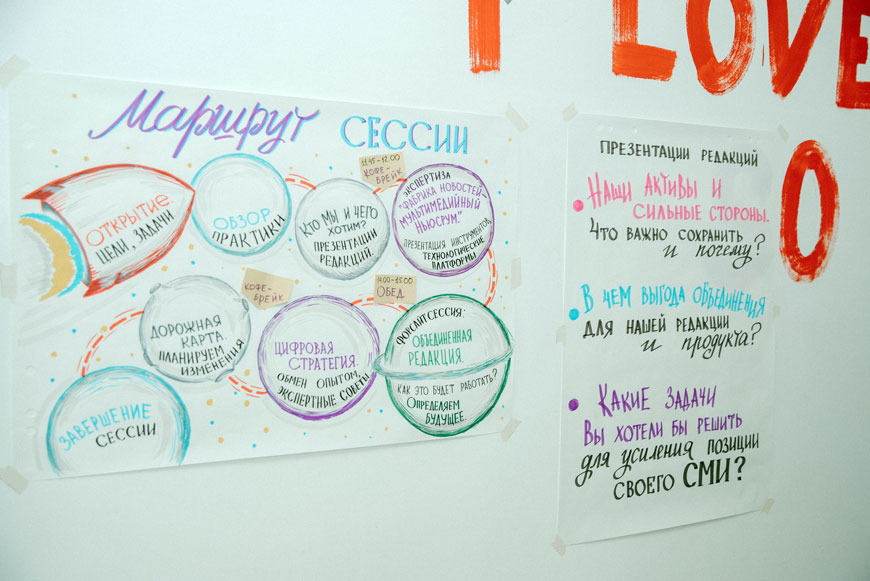 I LOVE
O
Маршрут СЕССИИ
ОТКРЫТИЕ
ЦЕЛИ, ЗАДАЧИ
ОБЗОР
ПРАКТИКИ
КТО МЫ И ЧЕГО
ХОТИМ?
ПРЕЗЕНТАЦИИ
РЕДАКЦИЙ.
11.45-12.00
КОФЕ-
БРЕЙК
ЭКСПЕРТИЗА
"ФАБРИКА НОВОСТЕЙ-
МУЛЬТИМЕДИЙНЫЙ
НЬЮСРУМ."
ПРЕЗЕНТАЦИЯ ИНСТРУМЕНТОВ,
ТЕХНОЛОГИЧЕСКИЕ
ПЛАТФОРМЫ
14.00-15.00
ОБЕД
ФОРСАЙТ СЕССИЯ:
ОБЪЕДИНЕННАЯ
РЕДАКЦИЯ.
КАК ЭТО БУДЕТ РАБОТАТЬ?
ОПРЕДЕЛЯЕМ
БУДУЩЕЕ.
ЦИФРОВАЯ
СТРАТЕГИЯ.
ОБМЕН ОПЫТОМ,
ЭКСПЕРТНЫЕ СОВЕТЫ
КОФЕ-
БРЕЙК
ДОРОЖНАЯ
КАРТА
ПЛАНИРУЕМ
ИЗМЕНЕНИЯ
ЗАВЕРШЕНИЕ
СЕССИИ
ПРЕЗЕНТАЦИИ РЕДАКЦИЙ
НАШИ АКТИВЫ И
СИЛЬНЫЕ СТОРОНЫ.
ЧТО ВАЖНО СОХРАНИТЬ
и почему?
В ЧЕМ ВЫГОДА ОБЪЕДИНЕНИЯ
ДЛЯ НАШЕЙ РЕДАКЦИИ
и продукта?
КАКИЕ ЗАДАЧИ
ВЫ ХОТЕЛИ БЫ РЕШИТЬ
для усиления ПОЗИЦИИ
СВОЕГО СМИ?